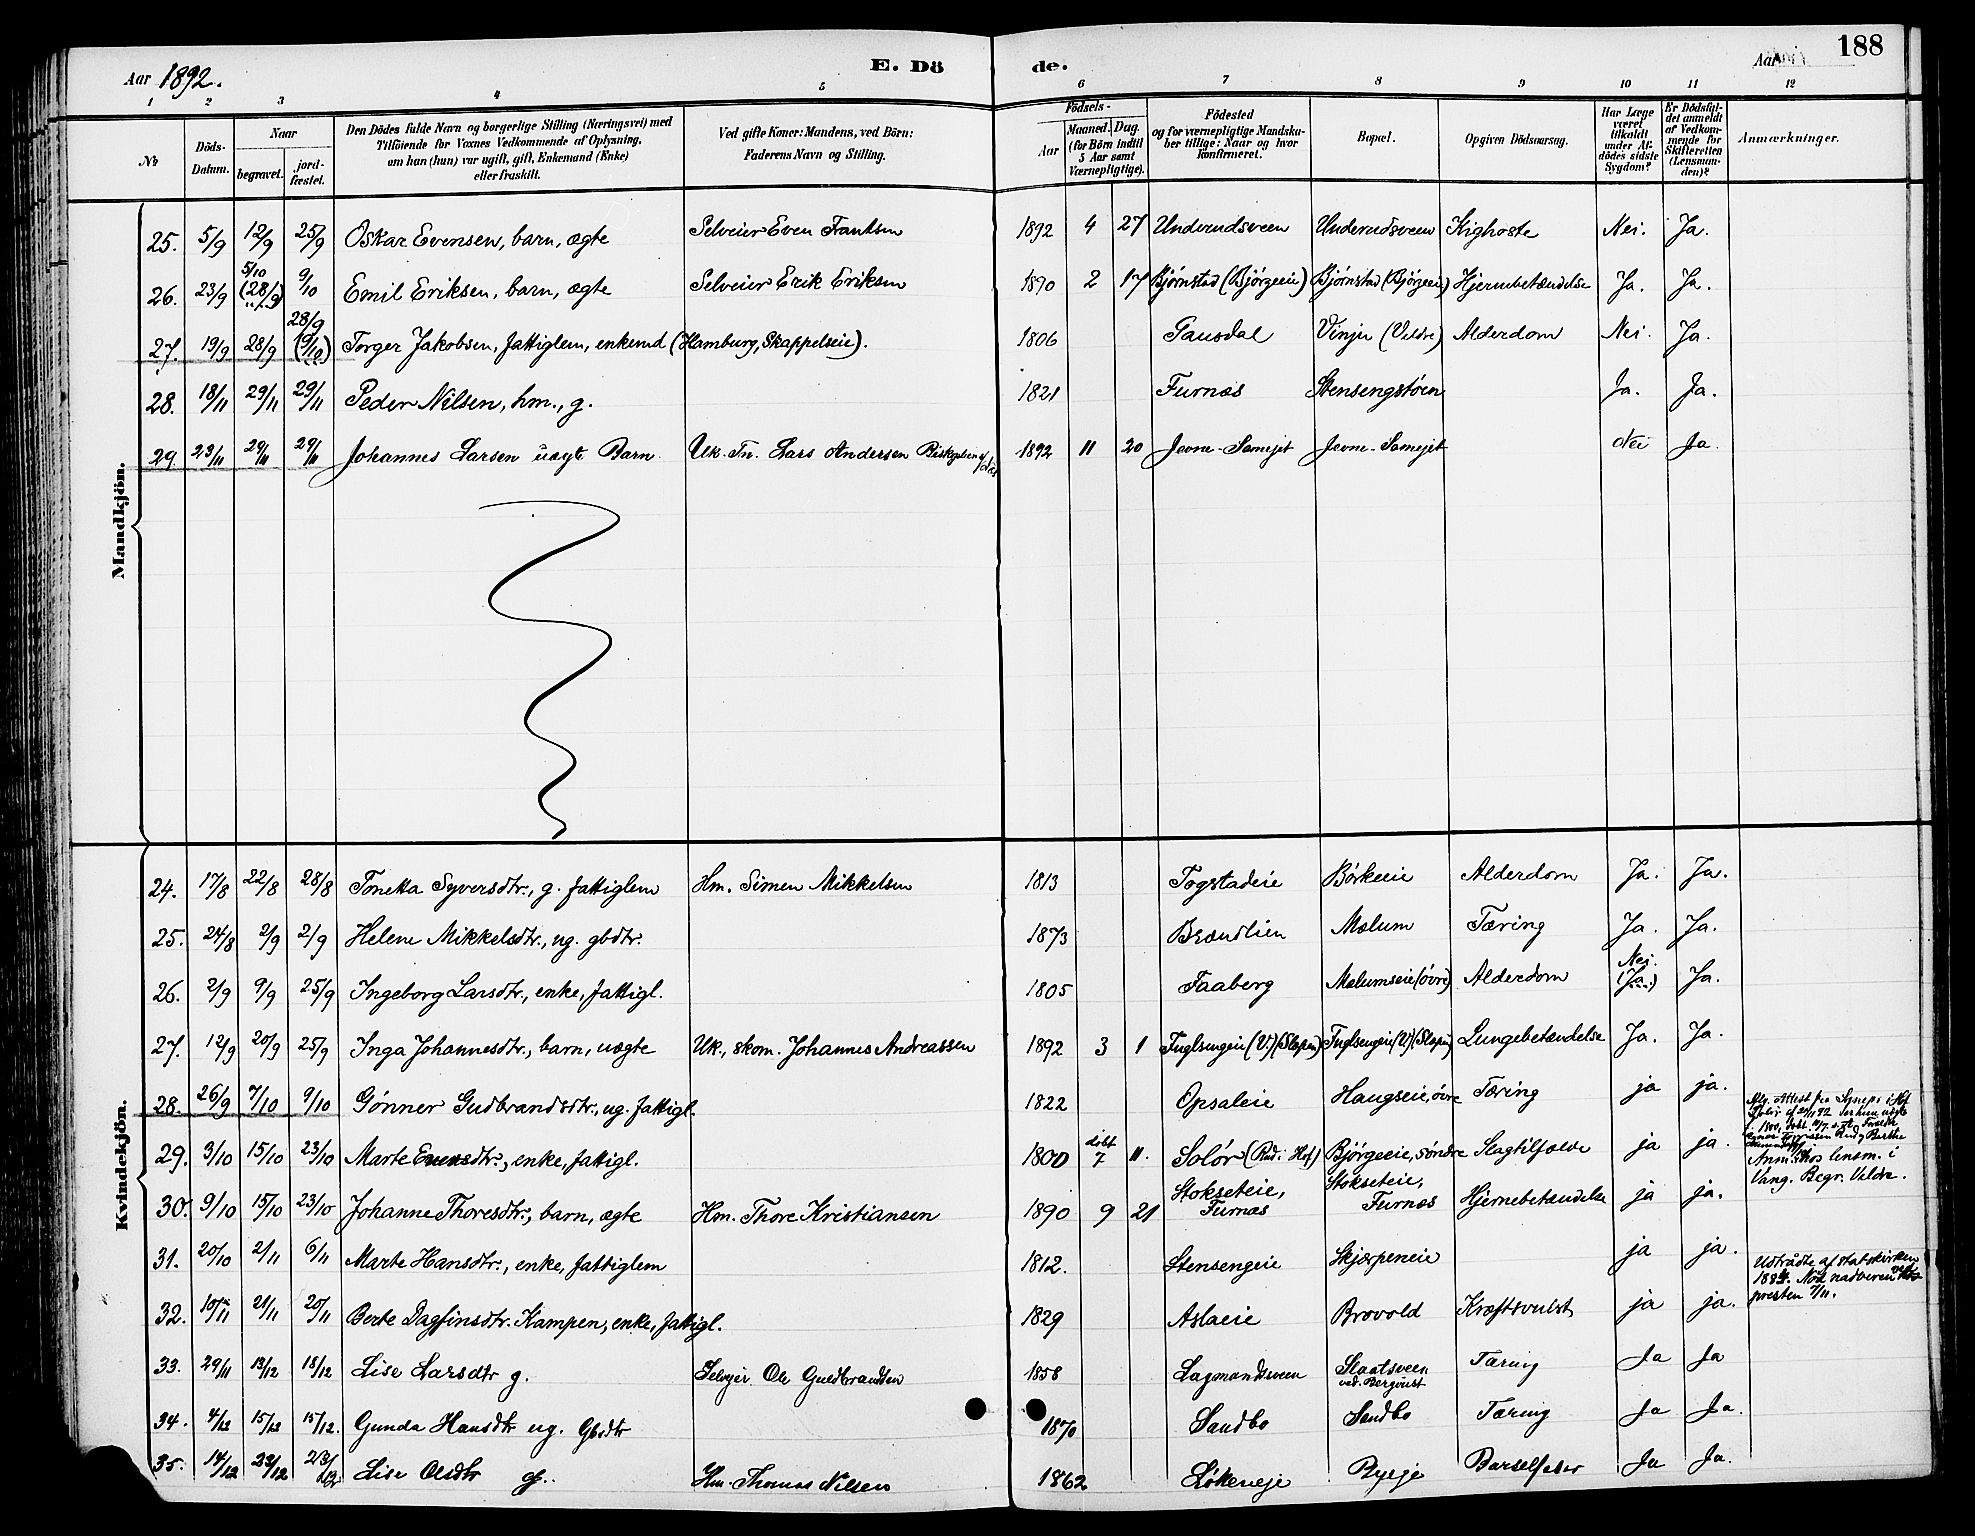 188
Aar 1892. E. Dö de. Aar
1 2 3 4 5 6 7 8 9 10 11 12
No
Döds-Datum.
Naar
begravet.
jord-fæstet.
Den Dödes fulde Navn og borgerlige Stilling (Næringsvei) med
Tilföiende for Voxnes Vedkommende af Oplysning,
om han (hun) var ugift, gift, Enkemand (Enke)
eller fraskilt.
Ved gifte Koner: Mandens, ved Börn:
Faderens Navn og Stilling.
Födsels-
Aar
Maaned. Dag.
(for Börn indtil
5 Aar samt
Værnepligtige).
Födested
og for værnepligtige Mandska-
ber tillige: Naar og hvor
konfirmeret.
Bopæl.
Opgiven Dödsaarsag.
Har Læge
været
tilkaldt
under Af-
dödes sidste
Sygdom?
Er Dödsfal-
det anmeldt
af Vedkom-
mende for
Skifteretten
(Lensman-
den)?
Anmærkninger.
Mandkjön.
25. 5/9 12/9 25/9 Oskar Evensen, barn, ægte Selveier Even Frantsen 1892 4 27 Underudsveen Underudsveen Kighoste Nei. Ja.
26. 23/9 5/10 (28/9) 9/10 Emil Eriksen, barn, ægte Selveier Erik Eriksen 1890 2 17 Bjørnstad (Bjørgeeie) Bjørnstad (Bjørgeeie) Hjernebetændelse Ja. Ja.
27. 19/9 28/9 28/9 (9/10) Torger Jakobsen, fattiglem, enkemd (Hamburg, Skappelseie). 1806 Gausdal Vinju (Veldre) Alderdom Nei. Ja.
28. 18/11 29/11 29/11 Peder Nilsen, hm., g. 1821 Furnæs Stensengstøen Ja. Ja.
29 23/11 29/11 29/11 Johannes Larsen uægt. Barn Uk. Tn. Lars Andersen 1892 11 20 Jevne-Samejet Jevne-Samejet Nei Ja.
Kvindekjön.
24. 17/8 22/8 28/8 Tonetta Syversdtr., g. fattiglem Hm. Simen Mikkelsen 1813 Togstadeie Børkeeie Alderdom Ja. Ja.
25. 24/8 2/9 2/9 Helene Mikkelsdtr., ug. gbdtr. 1873 Brændlien Mælum Tæring Ja. Ja.
26. 2/9 9/9 25/9 Ingeborg Larsdtr., enke, fattigl. 1805 Faaberg Mælumseie (øvre) Alderdom Nei. (Ja.) Ja.
27. 12/9 20/9 25/9 Inga Johannesdtr., barn, uægte Uk., skom. Johannes Andreassen 1892 3 1 Fuglsengeie (V.) (Slopen) Fuglsengeie (V.) (Slopen) Lungebetændelse Ja. Ja.
28. 26/9 7/10 9/10 Gønner Gudbrandsdtr., ug. fattigl. 1822 Opsaleie Haugseie, øvre Tæring ja ja.
29. 3/10 15/10 23/10 Marte Evensdtr., enke, fattigl. 1800 døbt 7 11. Solør (Rud i Hof) Bjørgeeie, søndre Slagtilfælde ja ja.
Vang. Begr. Veldre.
30. 9/10 15/10 23/10 Johanne Thoresdtr., barn, ægte Hm. Thore Kristiansen 1890 9 21 Stokseteie, Furnæs Stokseteie, Furnæs Hjernebetændelse ja ja.
31. 20/10 2/11 6/11 Marte Hansdtr., enke, fattiglem 1812. Stensengeie Skjærpeneie ja ja.
32. 10/11 21/11 20/11 Berte Dagfinsdtr. Kampen, enke, fattigl. 1829 Aslaeie Brovold Kræftsvulst ja ja.
Udtrådte af statskirken
presten 7/11.
33. 29/11 13/12 18/12 Lise Larsdtr g. Selvejer Ole Guldbrandsen 1858 Lagmandsveen Slaatsveen ved Bergvust Tæring Ja Ja
34. 4/12 15/12 15/12. Gunda Hansdtr ug. Gbdtr 1870 Sandbo Sandbo Tæring Ja Ja.
35. 14/12 23/12 23/12 Lise Olsdtr g. Hm. Thomas Nilsen 1862 Løkeneje Byeje Barselfeber Ja Ja.